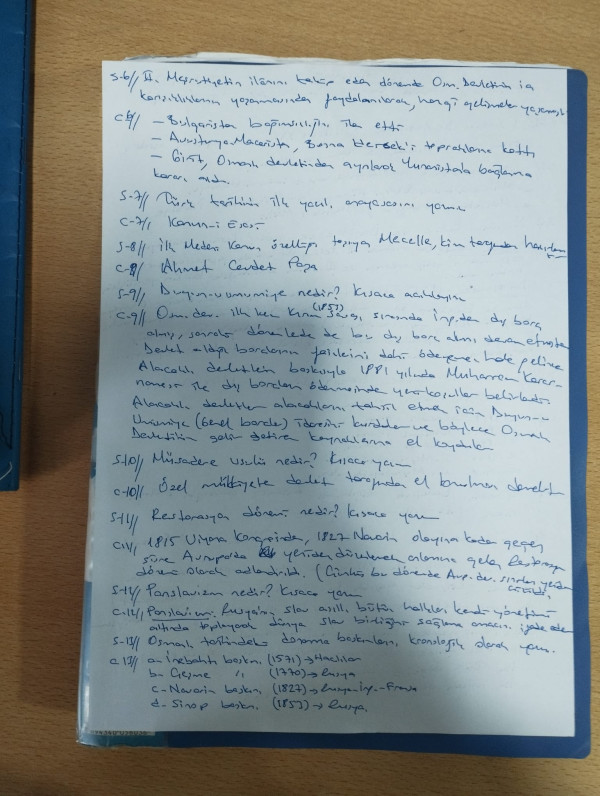 S-6// II. Meşrutiyetin ilânını takip eden dönemde Osm. Devletinin iç
karışıklıkların yaşanmasından faydalanılarak, hangi gelişmeler yaşanmıştır
C-6// – Bulgaristan bağımsızlığını ilan etti
– Avusturya-Macaristan, Bosna Hersek'i topraklarına kattı
– Girit, Osmanlı devletinden ayrılarak Yunanistan'a bağlanma
kararı aldı.
S-7// Türk tarihinin ilk yazılı anayasasını yazınız
C-7// Kanun-i Esasi
S-8// İlk Medeni Kanun özelliği taşıyan Mecelle, kim tarafından hazırlanmış
C-8// Ahmet Cevdet Paşa
S-9// Duyun-u umumiye nedir? Kısaca açıklayın
C-9// Osm. dev. ilk kez Kırım (1853) Savaşı sırasında İng.den dış borç
almış, sonraki dönemlerde de bu dış borç alımı devam etmiştir
Devlet aldığı borçların faizlerini dahi ödeyemez hale gelince
Alacaklı devletlerin baskısıyla 1881 yılında Muharrem Karar-
namesi ile dış borçların ödenmesinde yeni koşullar belirlendi.
Alacaklı devletler alacaklarını tahsil etmek için Duyun-u
Umumiye (Genel borçlar) idaresini kurdular ve böylece Osmanlı
Devletinin gelir getiren kaynaklarına el koydular
S-10// Müsadere usulü nedir? Kısaca yazın
C-10// Özel mülkiyete devlet tarafından el konulması demektir
S-11// Restorasyon dönemi nedir? Kısaca yazın
C-11// 1815 Viyana Kongresinden, 1827 Navarin olayına kadar geçen
süre Avrupada yeniden düzenleme anlamına gelen Restorasyon
dönemi olarak adlandırıldı. (Çünkü bu dönemde Avp. dev. sınırları yeniden
çizildi)
S-12// Panslavizm nedir? Kısaca yazın
C-12// Panslavizm, Rusya'nın slav asıllı bütün halkları kendi yönetimi
altında toplayarak dünya slav birliğini sağlama amacını ifade eder
S-13// Osmanlı tarihindeki donanma baskınlarını kronolojik olarak yazın.
C-13// a- İnebahtı baskını (1571) → Haçlılar
b- Çeşme " (1770) → Rusya
c- Navarin baskını (1827) → Rusya-İng.-Fransa
d- Sinop baskını (1853) → Rusya.